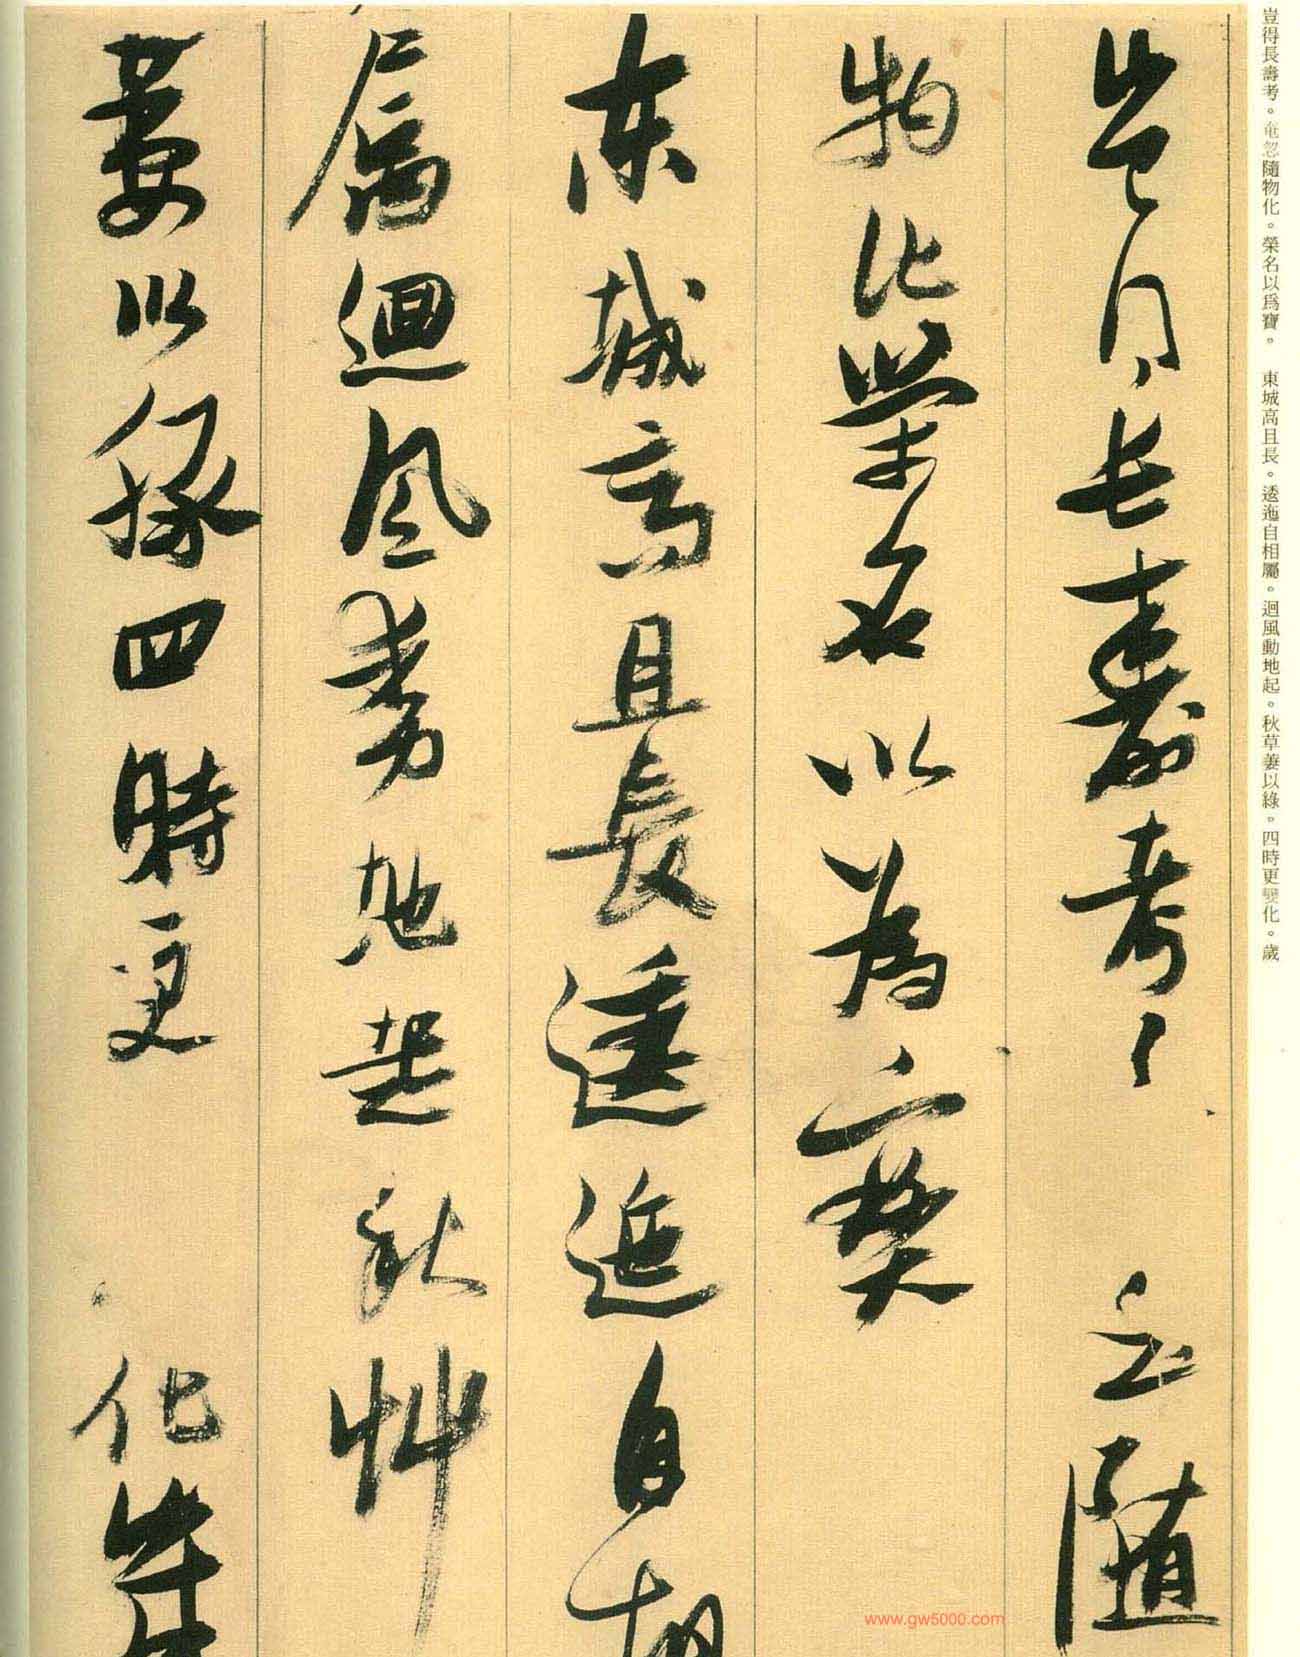 豈得長壽考。奄忽隨物化。榮名以爲寶。 東城高且長。逶迤自相屬。迴風動地起。秋草萋以綠。四時更變化。歲
豈得長壽考〻 忽隨
物化榮名以為寶
東城高且長逶迤自相
屬迴風動地起秋艸
萋以綠四時更 化歲
www.gw5000.com